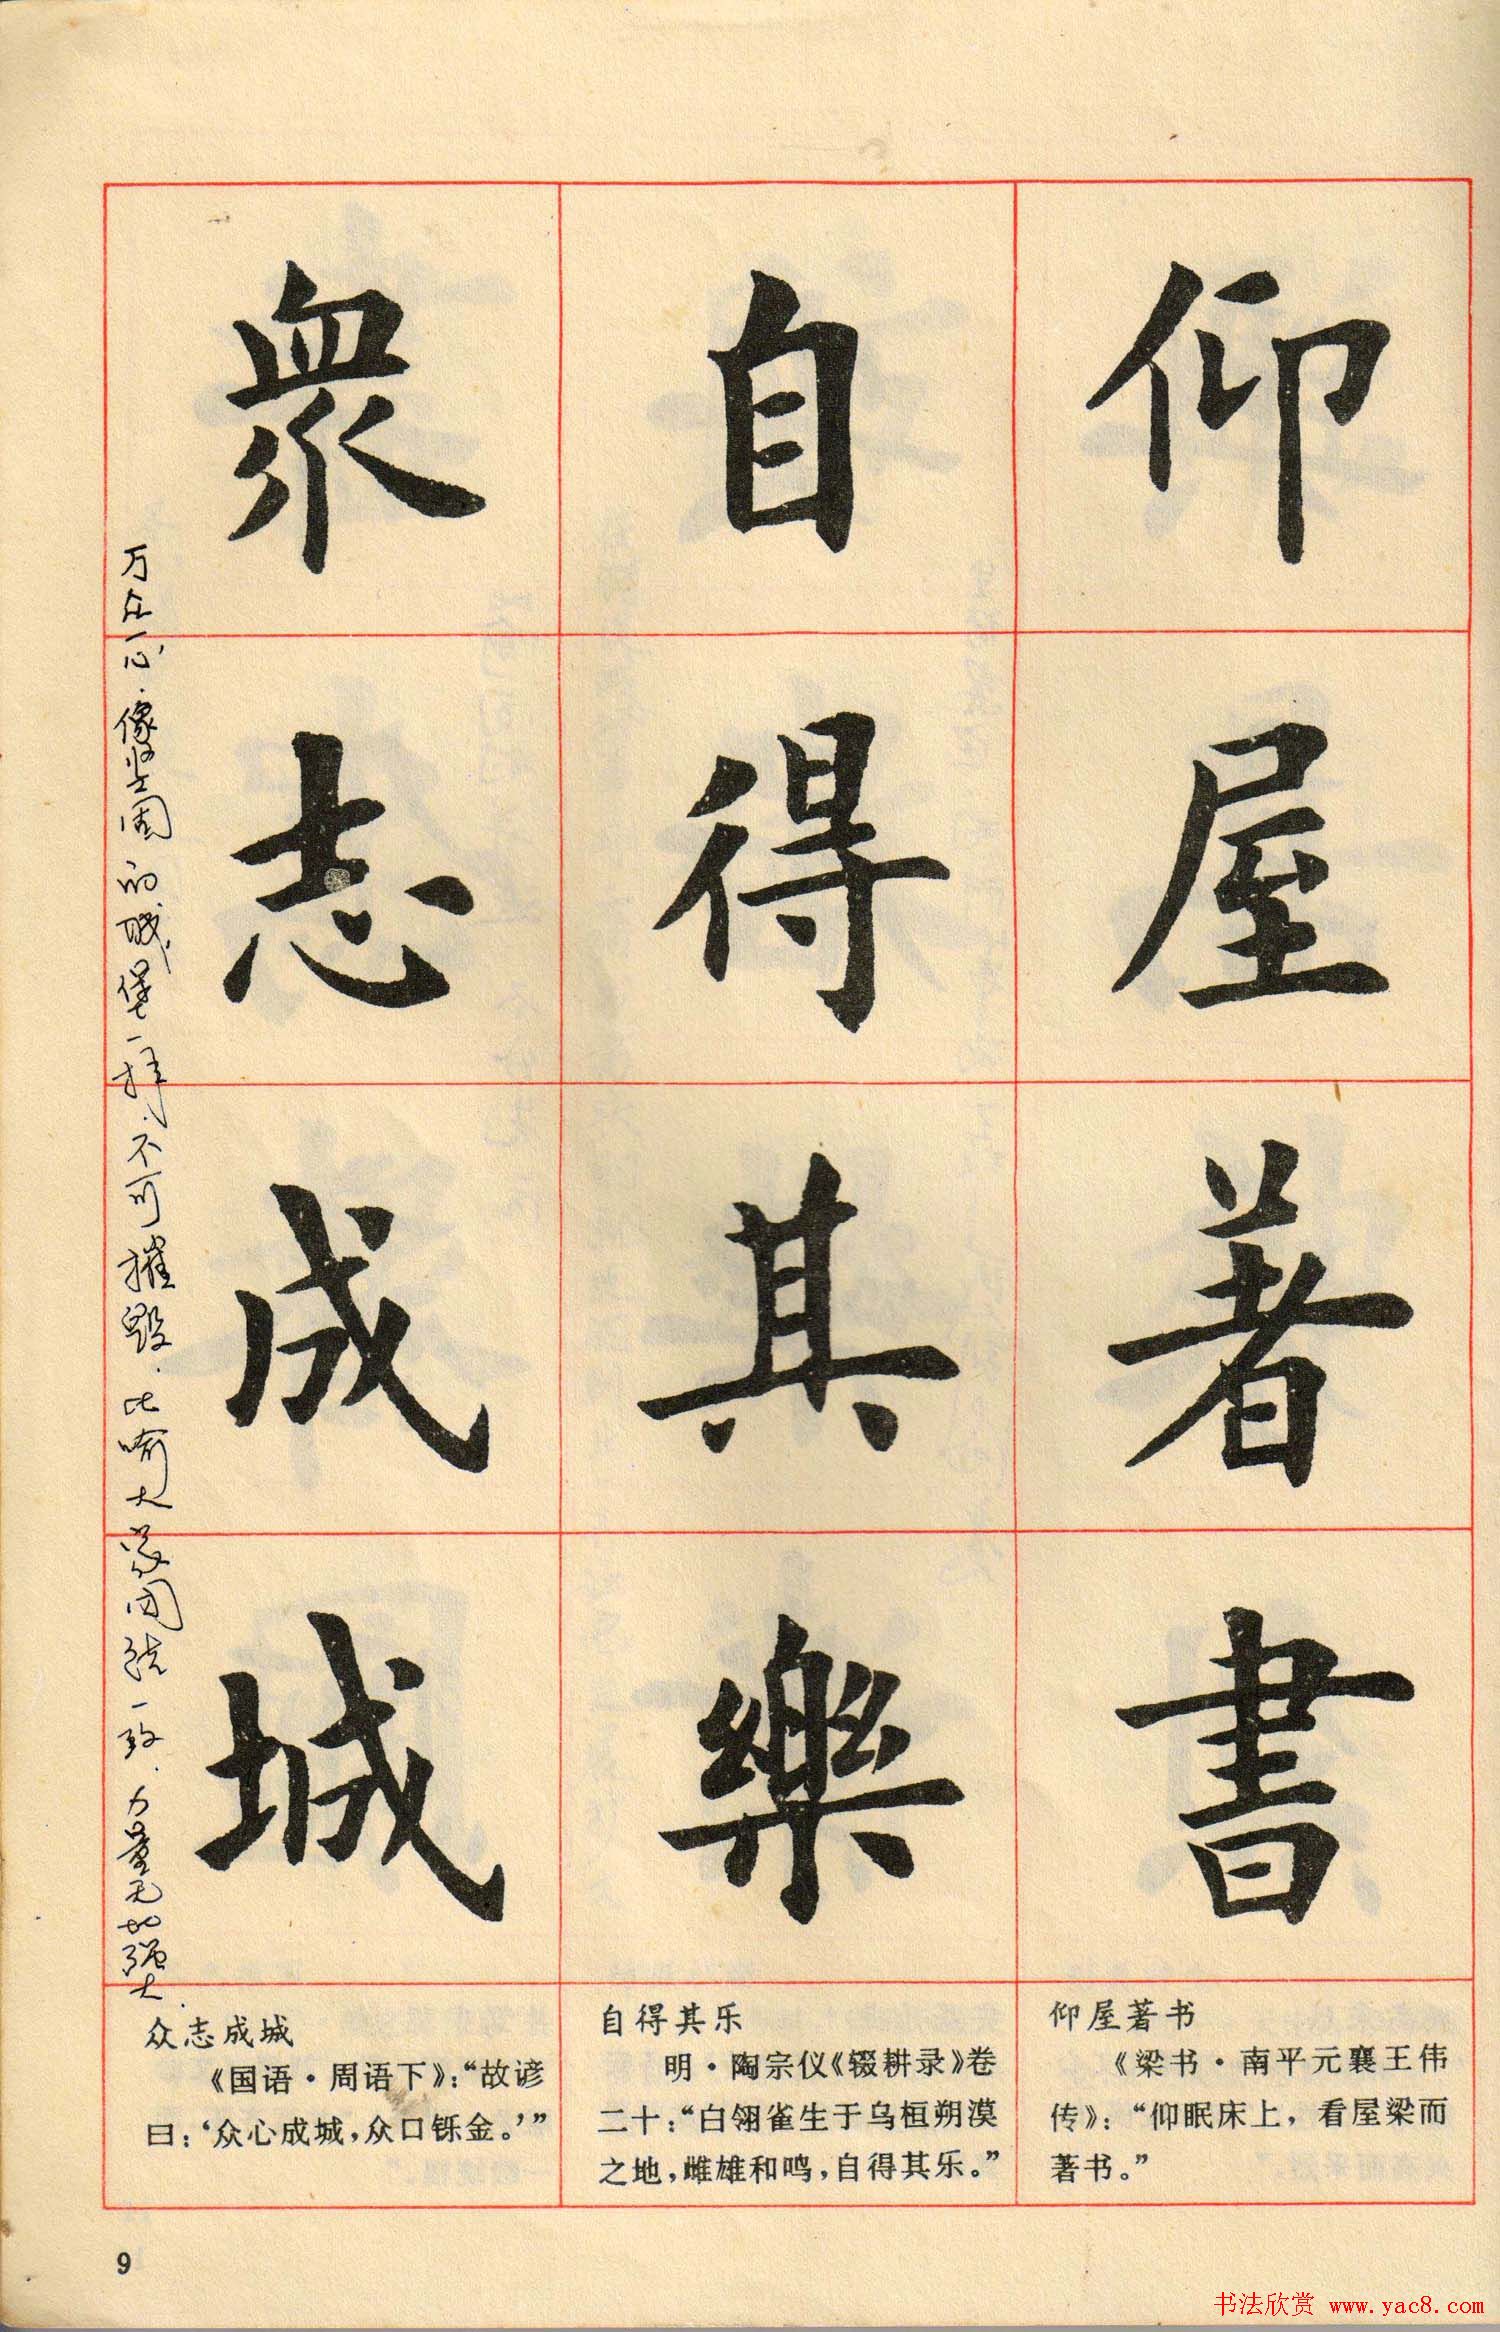 仰屋著書
自得其樂
眾志成城
万众一心.像坚固的城堡一样,不可摧毁.比喻大家团结一致.力量无比强大.
仰屋著书
《梁书·南平元襄王伟
传》：“仰眠床上，看屋梁而
著书。”
自得其乐
明·陶宗仪《辍耕录》卷
二十：“白翎雀生于乌桓朔漠
之地，雌雄和鸣，自得其乐。”
众志成城
《国语·周语下》：“故谚
曰：‘众心成城，众口铄金。’”
9
书法欣赏 www.yac8.com